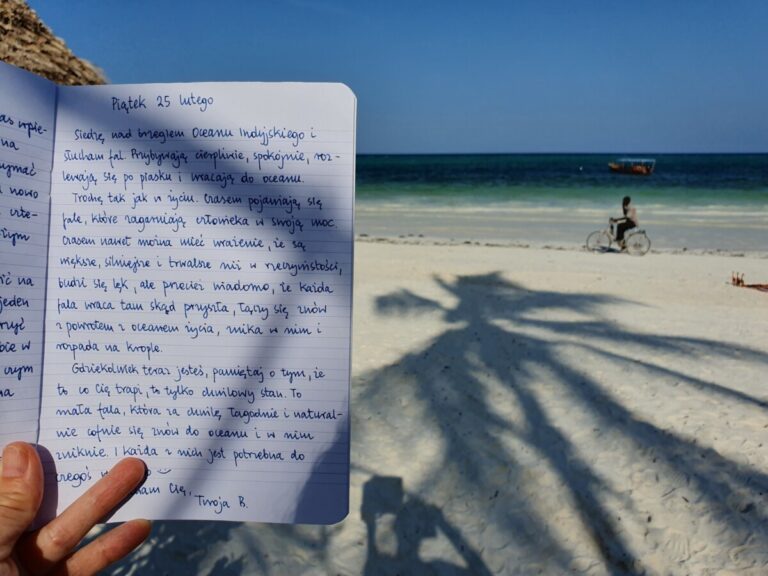 as wpie-
na
zymać
nowo
tym
na
jeden
bie w
czym
na
Piątek 25 lutego
Siedzę nad brzegiem Oceanu Indyjskiego i
słucham fal. Przybywają cierpliwie, spokojnie, roz-
lewają się po piasku i wracają do oceanu.
Trochę tak jak w życiu. Czasem pojawiają się
fale, które zagarniają człowieka w swoją moc.
Czasem nawet można mieć wrażenie, że są
większe, silniejsze i trwalsze niż w rzeczywistości,
budzi się lęk, ale przecież wiadomo, że każda
fala wraca tam skąd przyszła, łączy się znów
z powrotem z oceanem życia, znika w nim i
rozpada na krople.
Gdziekolwiek teraz jesteś, pamiętaj o tym, że
to co Cię trapi, to tylko chwilowy stan. To
mała fala, która za chwilę łagodnie i natural-
nie cofnie się znów do oceanu i w nim
zniknie. I każda z nich jest potrzebna do
czegoś
Cię,
Twoja B.